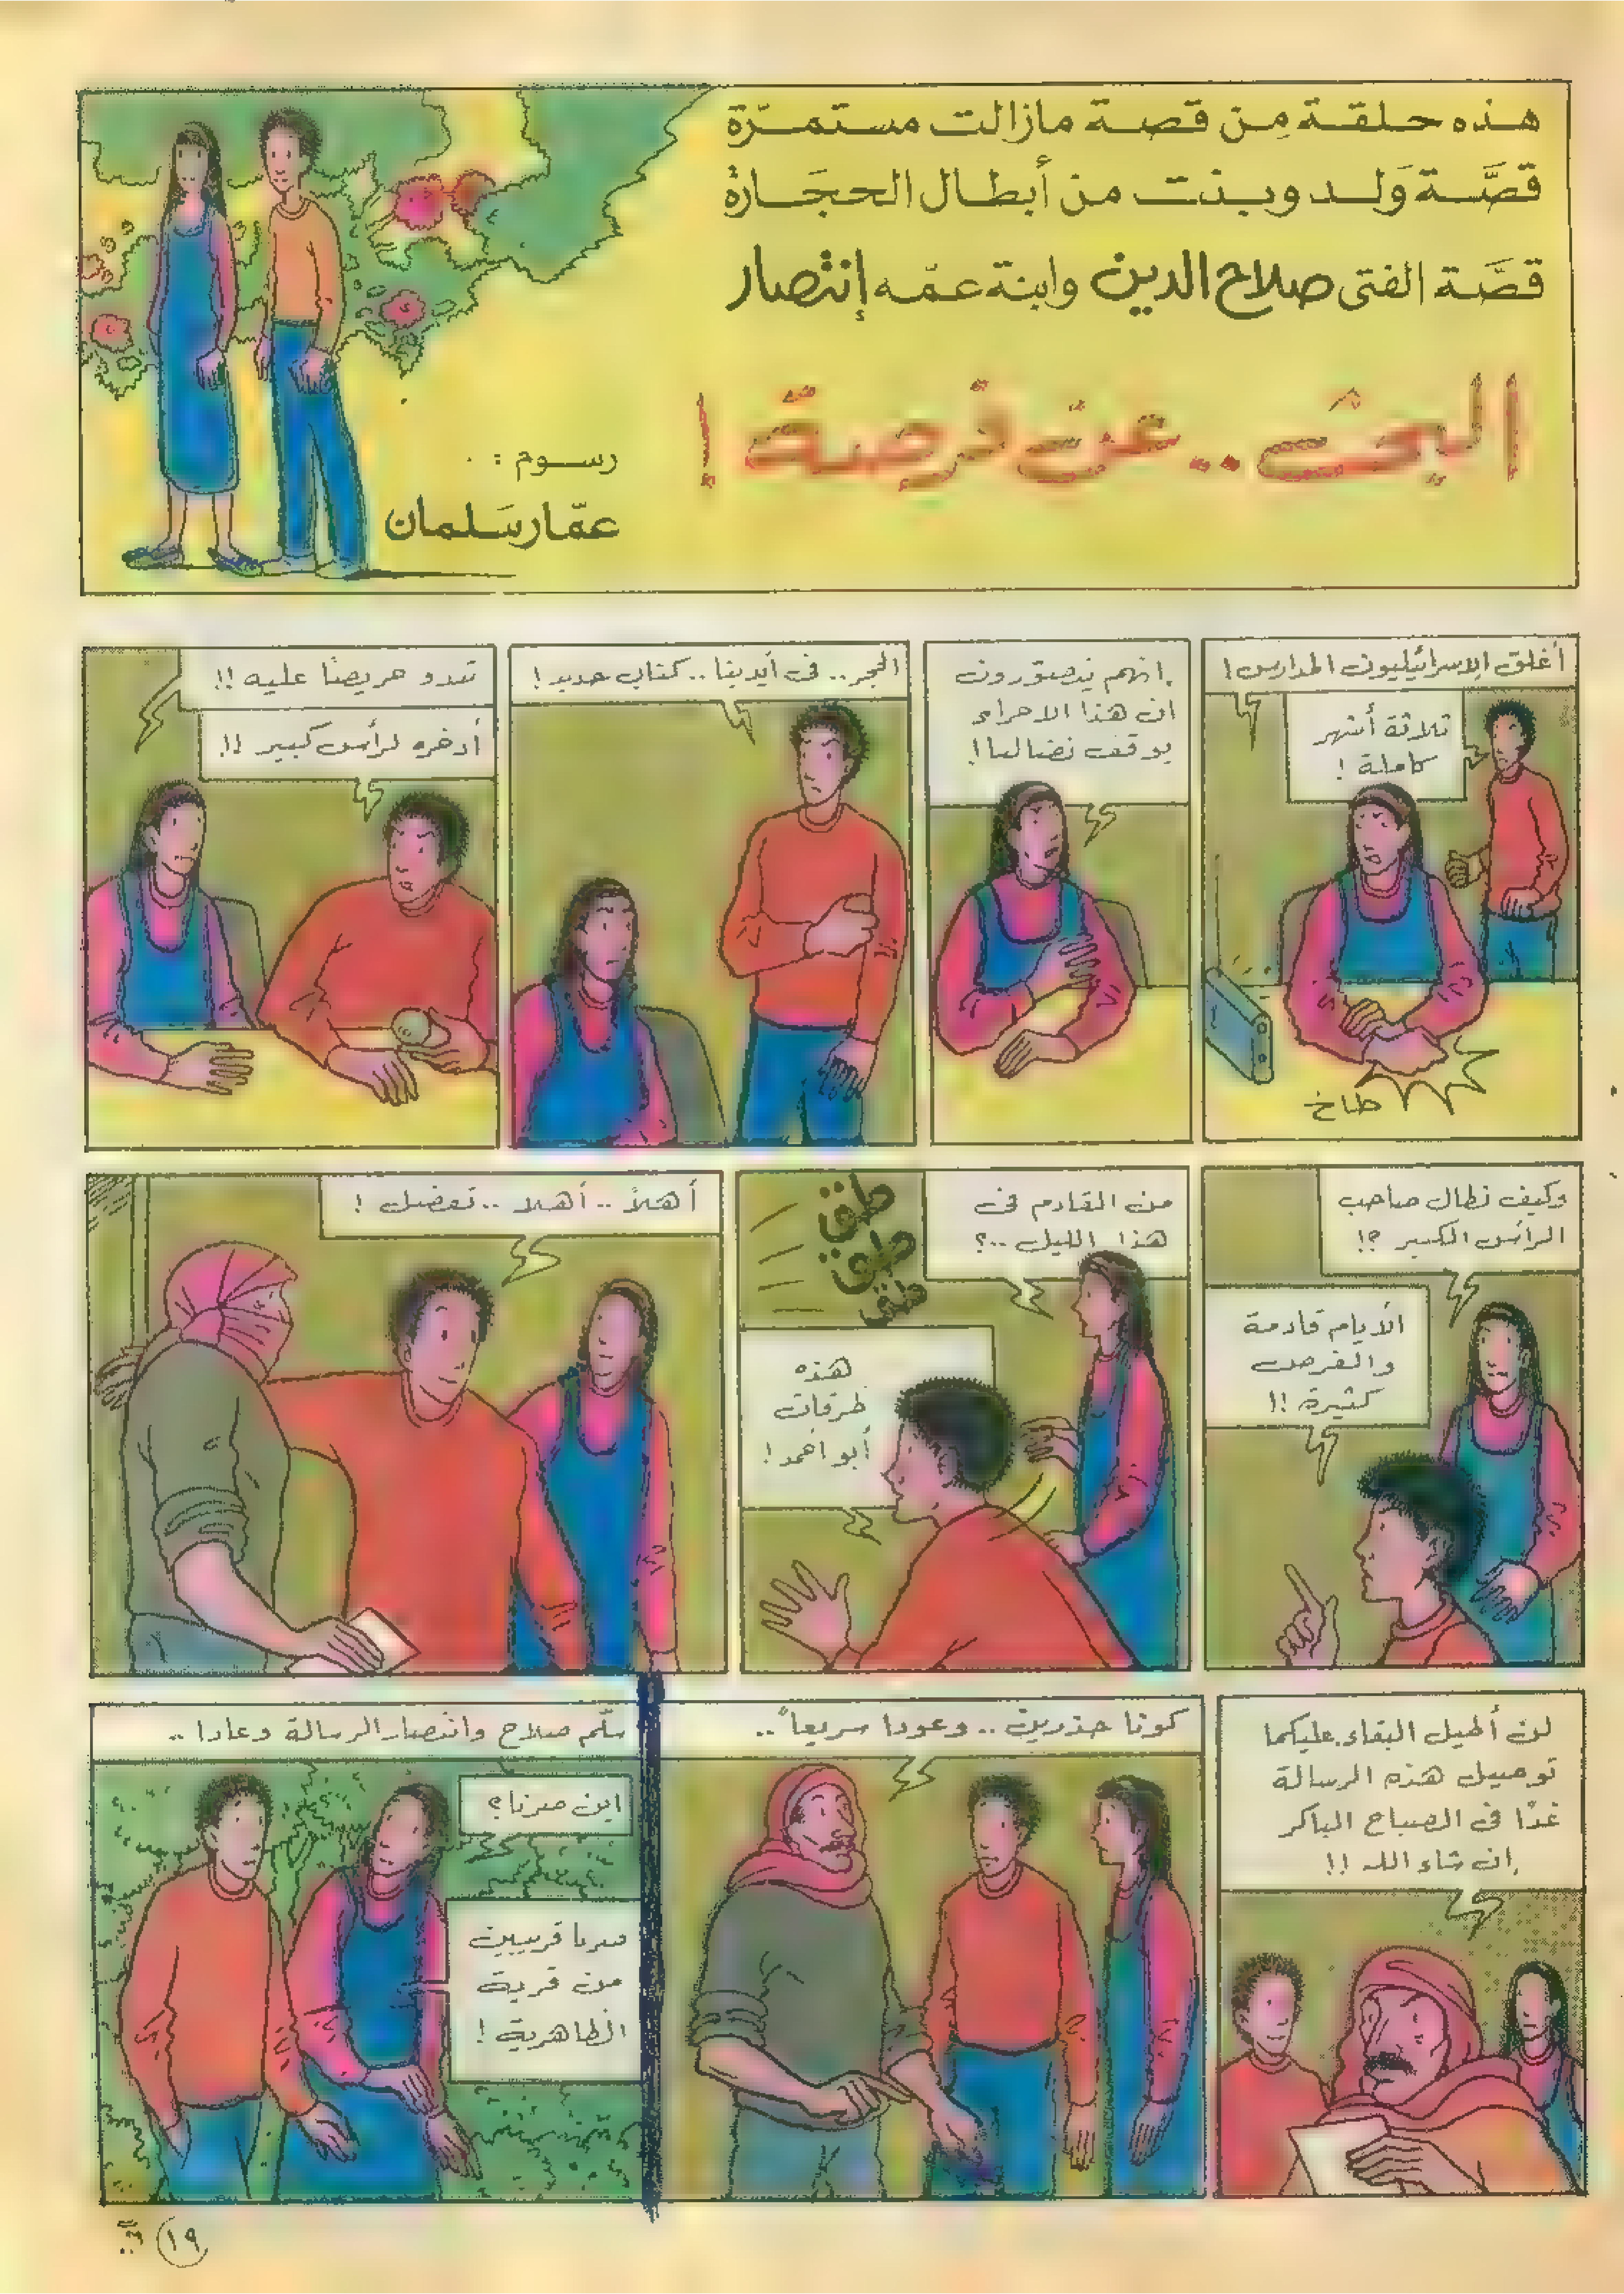 هذه حلقة مِن قصة مازالت مستمرّة
قصَّة وَلد وبنت من أبطال الحجَارة
قصَّة الفتى صلاح الدين وابنة عمّه إنتصار
البحث .. عن فرصة !
رسوم :
عمّار سَلمان
أغلق الإسرائيليون المدارس !
ثلاثة أشهر
كاملة !
طاخ
إنهم يتصورون
ان هذا الاجراء
يوقف نضالنا !
الحجر .. فى أيدينا .. كتاب جديد !
تبدو حريصًا عليه !!
أدخره لرأس كبير !!
وكيف تطال صاحب
الرأس الكبير ؟!
الأيام قادمة
والفرص
كثيرة !!
من القادم فى
هذا الليل ..؟
طق
طق
طق
هذه
طرقات
أبو احمد !
أهلاً .. أهلا .. تفضل !
لن أطيل البقاء . عليكما
توصيل هذه الرسالة
غدًا فى الصباح الباكر
إن شاء الله !!
كونا حذرين .. وعودا سريعاً ..
سلّم صلاح وانتصار الرسالة وعادا ..
اين صرنا ؟
صرنا قريبين
من قرية
الظاهرية !
١٩